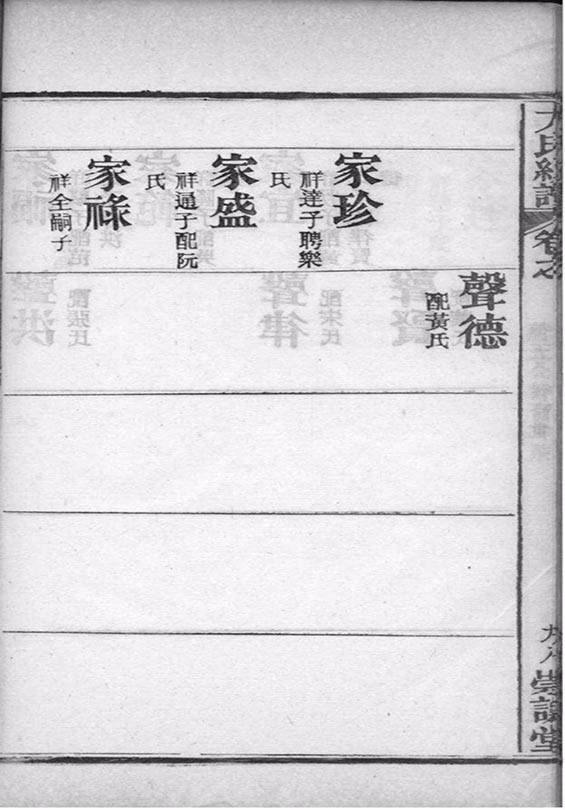 氏續譜
卷之
九八
崇謨堂
聲德
配黃氏
家珍
祥達子聘樂
氏
家盛
祥通子配阮
氏
家祿
祥全嗣子